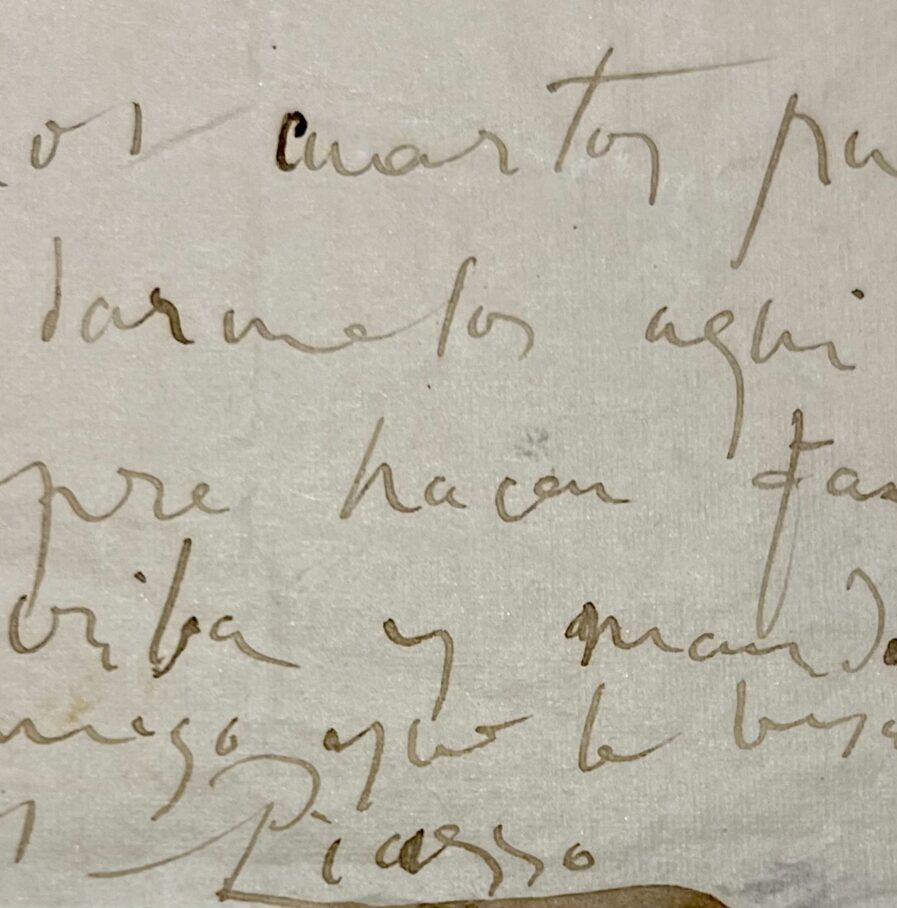 los cuartos pa
darmelos aqui
pre hacen fa
criba y mande
amigo que le besa
Picasso